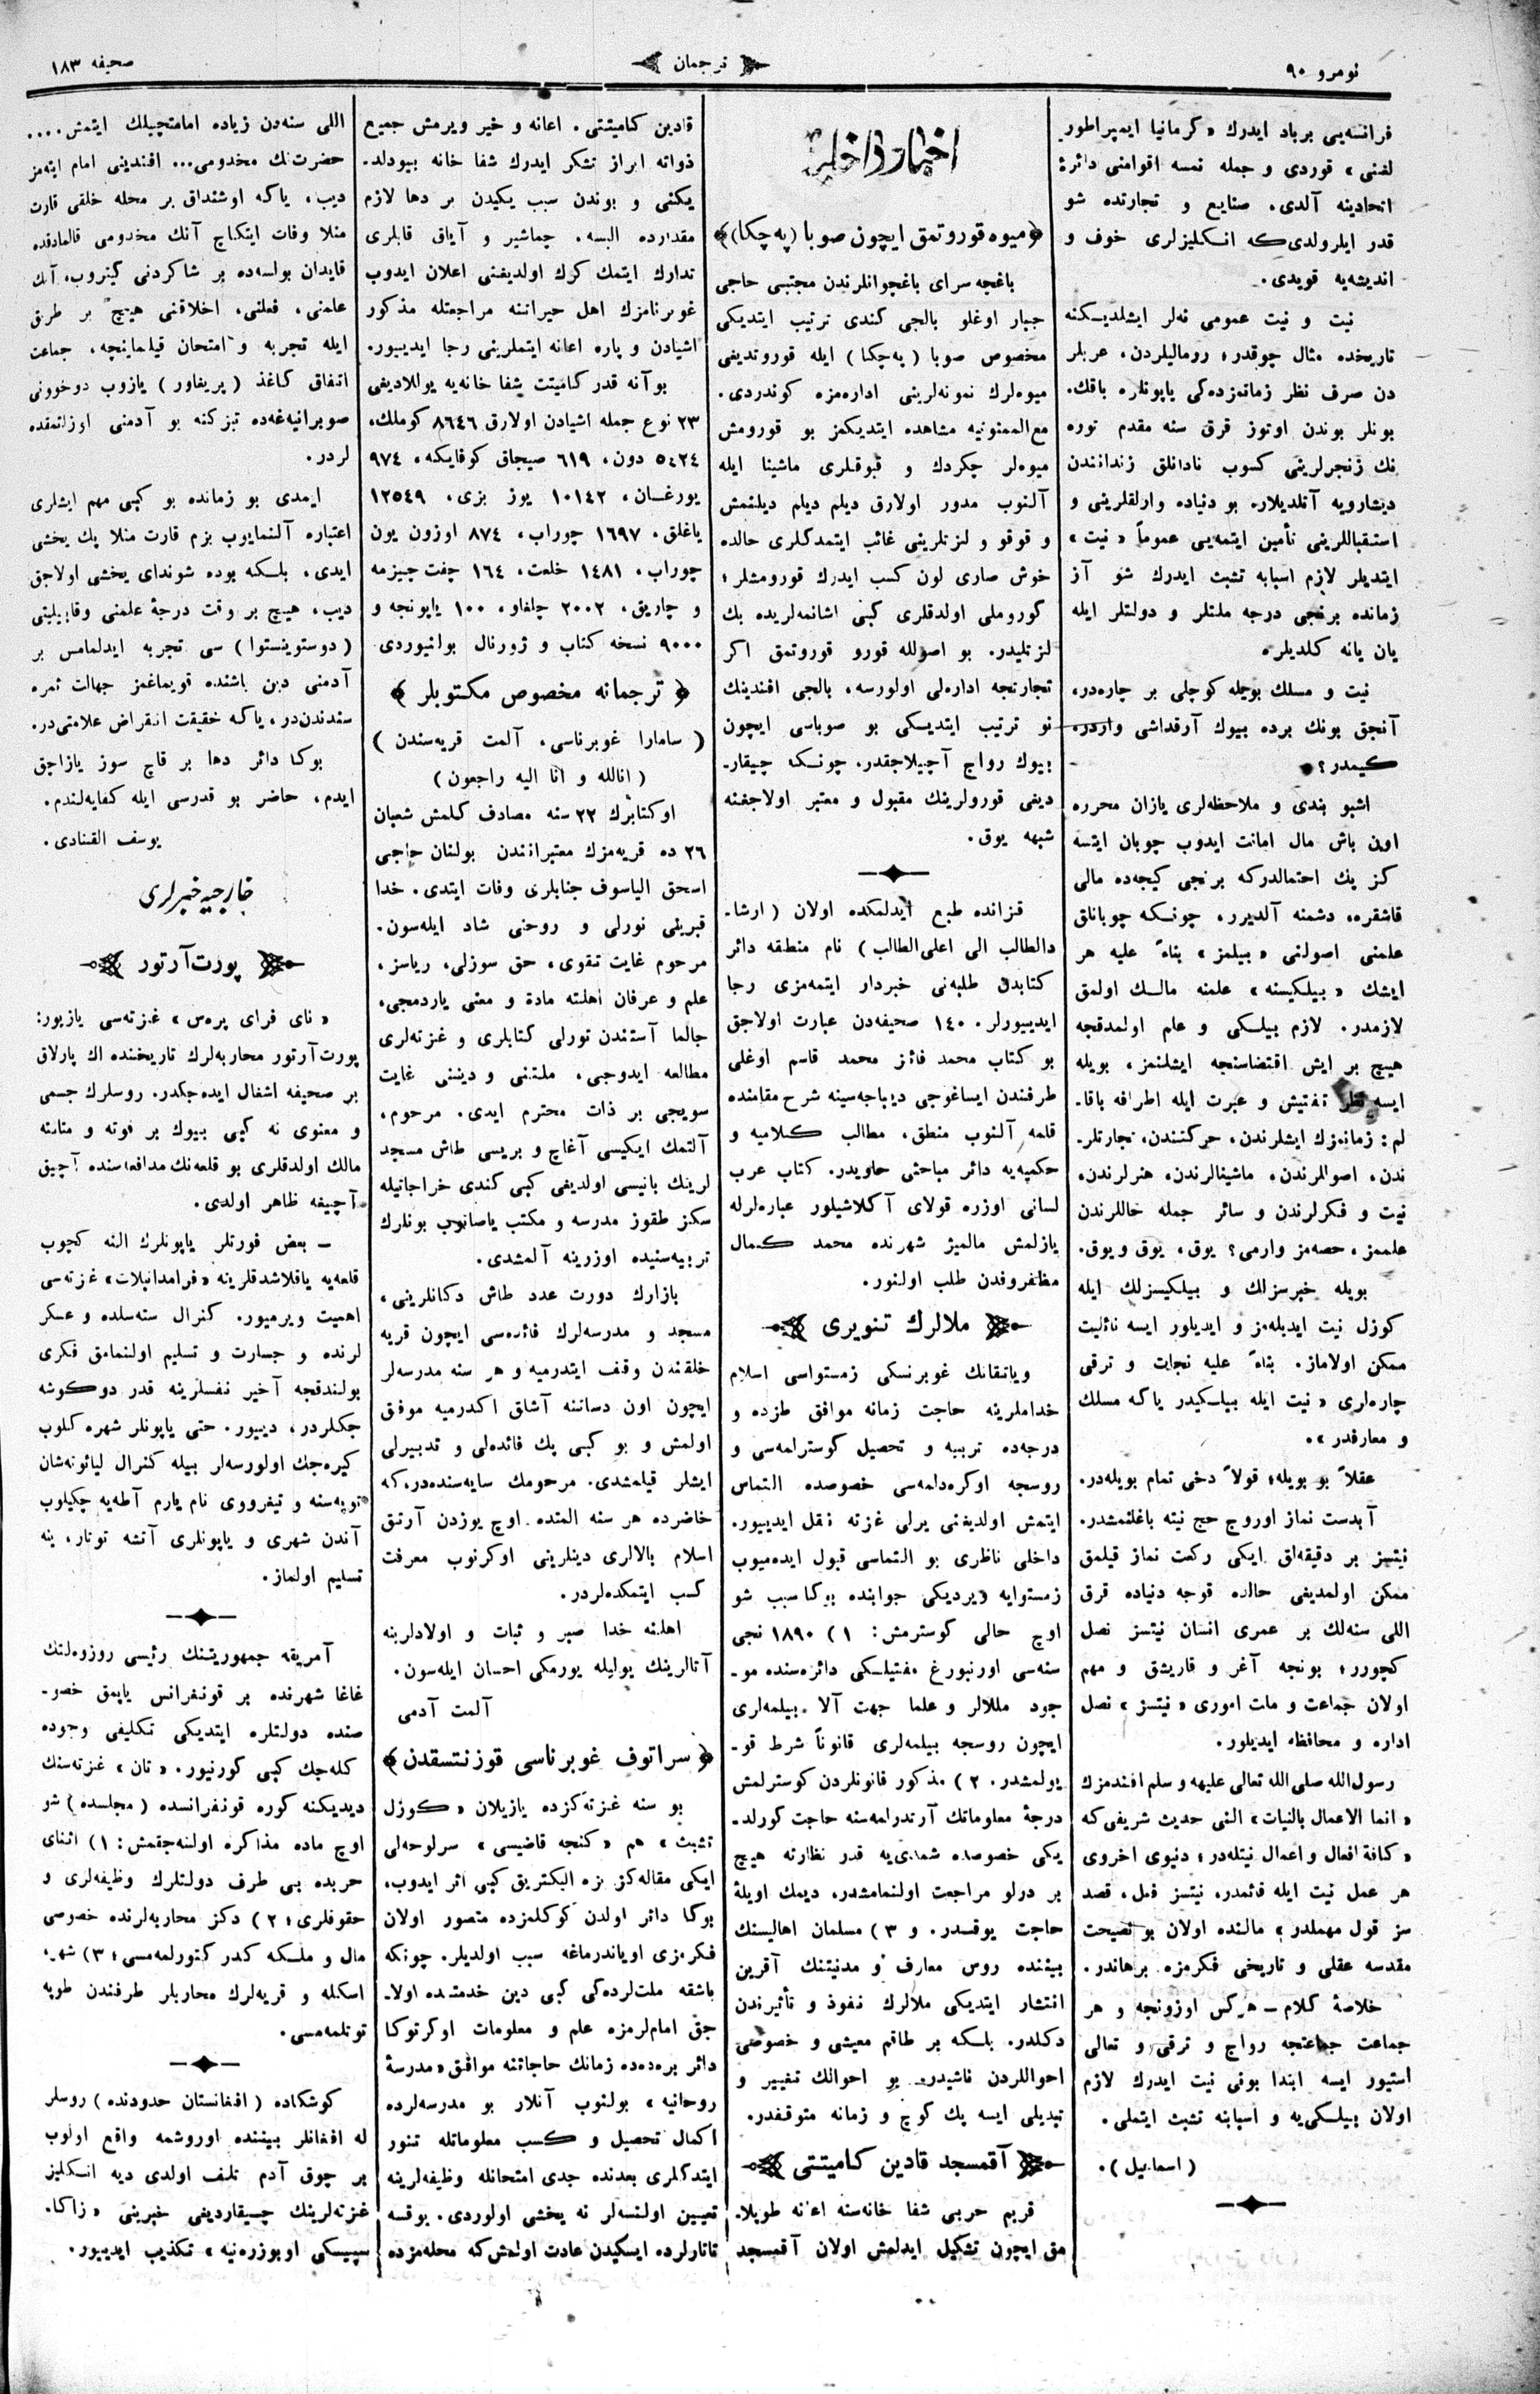 نومرو ٩٠
ترجمان
صحیفه ١٨٣
فرانسه‌یی برباد ایدرك «گرمانیا ایمپراطور
لغنی» قوردی و جمله نمسه اقوامنی دائرۀ
اتحادینه آلدی. صنایع و تجارتده شو
قدر ایلرولدی‌که انكلیزلری خوف و
اندیشه‌یه قویدی.
نیت و نیت عمومی نه‌لر ایشلدیكنه
تاریخده مثال چوقدر؛ رومالیلردن، عربلر
دن صرف نظر زمانمزده‌کی یاپونلره باقك.
بونلر بوندن اوتوز قرق سنه مقدم توره
نك زنجرلرینی کسوب نادانلق زنداندن
دیشارویه آتلدیلار. بو دنیاده وارلقلرینی و
استقباللرینی تأمین ایتمه‌یی عموماً «نیت»
ایتدیلر لازم اسبابه تشبث ایدرك شو آز
زمانده برنجی درجه ملتلر و دولتلر ایله
یان یانه کلدیلر.
نیت و مسلك بویله کوچلی بر چاره‌در،
آنجق بونك برده بیوك آرقداشی واردر.
کیمدر؟
اشبو بندی و ملاحظه‌لری یازان محرره
اون باش مال امانت ایدوب چوبان ایتسه
کز پك احتمالدرکه برنجی کیجه‌ده مالی
قاشقره، دشمنه آلدیرر، چونکه چوبانلق
علمنی اصولنی «بیلمز» بناءً علیه هر
ایشك «بیلکیسنه» علمنه مالك اولمق
لازمدر. لازم بیلکی و علم اولمدقجه
هیچ بر ایش اقتضاسنجه ایشلنمز، بویله
ایسه نظر تفتیش و عبرت ایله اطرافه باقا-
لم: زمانمزك ایشلرندن، حرکتندن، تجارتلر-
ندن، اصوللرندن، ماشینالرندن، هنرلرندن،
نیت و فکرلرندن و سائر جمله حاللرندن
علممز، حصه‌مز وارمی؟ یوق، یوق و یوق.
بویله خبرسزلك و بیلکیسزلك ایله
کوزل نیت ایدیله‌مز و ایدیلور ایسه نائلیت
ممکن اولاماز. بناءً علیه نجات و ترقی
چاره‌لری «نیت ایله بیلکیدر یاکه مسلك
و معارفدر».
عقلاً بو بویله؛ قولاً دخی تمام بویله‌در.
آبدست نماز اوروچ حج نیته باغلنمشدر.
نیتسز بر دقیقه‌لق ایکی رکعت نماز قیلمق
ممکن اولمدیغی حالده قوجه دنیاده قرق
اللی سنه‌لك بر عمری انسان نیتسز نصل
کچورر؛ بونجه آغر و قاریشق و مهم
اولان جماعت و ملت اموری «نیتسز» نصل
اداره و محافظه ایدیلور.
رسول‌الله صلی‌الله تعالی علیه و سلم افندمزك
«انما الاعمال بالنیات» التی حدیث شریفی‌که
«کافۀ افعال و اعمال نیتله‌در؛ دنیوی اخروی
هر عمل نیت ایله قائمدر، نیتسز فعل، قصد
سز قول مهملدر» مالنده اولان بو نصیحت
مقدسه عقلی و تاریخی فکرمزه برهاندر.
خلاصۀ کلام – هرکس اوزونجه و هر
جماعت جماعتجه رواج و ترقی و تعالی
استیور ایسه ابتدا بونی نیت ایدرك لازم
اولان بیلکی‌یه و اسبابنه تشبث ایتملی.
(اسماعیل).
اخبار داخلیه
﴿میوه قوروتمق ایچون صوبا (په‌چكا)﴾
باغچه‌سرای باغچوانلرندن مجتبی حاجی
جبار اوغلو بالجی کندی ترتیب ایتدیکی
مخصوص صوبا (په‌چكا) ایله قوروتدیغی
میوه‌لرك نمونه‌لرینی اداره‌مزه کوندردی.
مع‌الممنونیه مشاهده ایتدیکمز بو قورومش
میوه‌لر چکردك و قبوقلری ماشینا ایله
آلنوب مدور اولارق دیلم دیلم دیلنمش
و قوقو و لذتلرینی غائب ایتمدکلری حالده
خوش صاری لون کسب ایدرك قورومشلر؛
کوروملی اولدقلری کبی اشانمه‌لریده پك
لذتلیدر. بو اصوللە قورو قوروتمق اکر
تجارتجه اداره‌لی اولورسه، بالجی افندینك
نو ترتیب ایتدیکی بو صوباسی ایچون
بیوك رواج آچیلاجقدر. چونکه چیقار-
دیغی قورولرینك مقبول و معتبر اولاجغنه
شبهه یوق.
قزانده طبع ایدلمكده اولان (ارشا-
دالطالب الی اعلی‌الطالب) نام منطقه دائر
کتابدن طلبه‌نی خبردار ایتمه‌مزی رجا
ایدییورلر. ١٤٠ صحیفه‌دن عبارت اولاجق
بو کتاب محمد فائز محمد قاسم اوغلی
طرفندن ایساغوجی دیباجه‌سینه شرح مقامنده
قلمه آلنوب منطق، مطالب کلامیه و
حکمیه‌یه دائر مباحثی حاویدر. کتاب عرب
لسانی اوزره قولای آکلاشیلور عباره‌لرله
یازلمش مالمیز شهرنده محمد کمال
مظفروفدن طلب اولنور.
ملالرك تنویری
ویاتقانك غوبرنسکی زمستواسی اسلام
خداملرینه حاجت زمانه موافق طرزده و
درجه‌ده تربیه و تحصیل کوسترلمه‌سی و
روسجه اوکره‌دلمه‌سی خصوصده التماس
ایتمش اولدیغنی یرلی غزته نقل ایدییور.
داخلی ناظری بو التماسی قبول ایده‌میوب
زمستوایه ویردیکی جوابنده بوکا سبب شو
اوچ حالی کوسترمش: ١) ١٨٩٠ نجی
سنه‌سی اورنبورغ مفتیلکی دائره‌سنده مو-
جود مللالر و علما جهت آلا بیلمه‌لری
ایچون روسجه بیلمه‌لری قانوناً شرط قو-
یولمشدر. ٢) مذکور قانونلردن کوسترلمش
درجۀ معلوماتك آرتدرلمه‌سنه حاجت کورلد-
یکی خصوصده شمدی‌یه قدر نظارته هیچ
بر درلو مراجعت اولنمامشدر. دیمك اویلۀ
حاجت یوقسدر. و ٣) مسلمان اهالیسنك
بیننده روس معارف و مدنیتنك آقرین
انتشار ایتدیکی ملالرك نفوذ و تأثیرندن
دکلدر. بلکه بر طاقم معیشی و خصوصی
احواللردن ناشیدر. بو احوالك تغییر و
تبدیلی ایسه پك کوچ و زمانه متوقفدر.
آقمسجد قادین کامیتتی
قریم حربی شفا خانه‌سنه اعانه طوپلا-
مق ایچون تشکیل ایدلمش اولان آقمسجد
قادین کامیتتی. اعانه و خیر ویرمش جمیع
ذواته ابراز تشکر ایدرك شفا خانه بیودلد-
یکنی و بوندن سبب یکیدن بر دها لازم
مقدارده البسه. چماشیر و آیاق قابلری
تدارك ایتمك کرك اولدیغنی اعلان ایدوب
غوبرنامزك اهل خیراتنه مراجعتله مذکور
اشیادن و پاره اعانه ایتملرینی رجا ایدییور.
بو آنه قدر کامیتت شفا خانه‌یه یوللادیغی
٢٣ نوع جمله اشیادن اولارق ٨٦٤٦ کوملك،
٥٤٢٤ دون، ٦١٩ صیجاق کوفایکه، ٩٧٤
یورغان، ١٠١٤٢ یوز بزی، ١٢٥٤٩
یاغلق، ١٦٩٧ چوراب، ٨٧٤ اوزون یون
چوراب، ١٤٨١ خلعت، ١٦٤ جفت چیزمه
و چاریق، ٢٠٠٢ چلفاو، ١٠٠ یاپونجه و
٩٠٠٠ نسخه کتاب و ژورنال بولنیوردی
﴿ترجمانه مخصوص مکتوبلر﴾
(سامارا غوبرناسی، آلمت قریه‌سندن)
(انالله و انا الیه راجعون)
اوکتابرك ٢٢ سنه مصادف کلمش شعبان
٢٦ ده قریه‌مزك معتبراتندن بولنان حاجی
اسحق الیاسوف جنابلری وفات ایتدی. خدا
قبرینی نورلی و روحنی شاد ایله‌سون.
مرحوم غایت تقوی، حق سوزلی، ریاسز،
علم و عرفان اهلنه مادۀ و معنی یاردمجی،
جالما آستندن تورلی کتابلری و غزته‌لری
مطالعه ایدوجی، ملتنی و دیننی غایت
سویجی بر ذات محترم ایدی. مرحوم،
آلتمك ایکیسی آغاچ و بریسی طاش مسجد
لرینك بانیسی اولدیغی کبی کندی خراجاتیله
سکز طقوز مدرسه و مکتب یاصاتوب بونلرك
تربیه‌سنیده اوزرینه آلمشدی.
بازارك دورت عدد طاش دکانلرینی،
مسجد و مدرسه‌لرك فائده‌سی ایچون قریه
خلقندن وقف ایتدرمیه و هر سنه مدرسه‌لر
ایچون اون دساتنه آشلق اکدرمیه موفق
اولمش و بو کبی پك فائده‌لی و تدبیرلی
ایشلر قیلمشدی. مرحومك سایه‌سنده‌در، که
حاضرده هر سنه المتده اوچ یوزدن آرتق
اسلام بالالری دینلرینی اوکرنوب معرفت
کسب ایتمكده‌لردر.
اهلنه خدا صبر و ثبات و اولادلرینه
آتالرینك یولیله یورمکی احسان ایله‌سون.
آلمت آدمی
﴿سراتوف غوبرناسی قوزنتسقدن﴾
بو سنه غزته‌کزده یازیلان «کوزل
تشبث» هم «کنجه قاضیسی» سرلوحه‌لی
ایکی مقاله‌کز بزه الیکتریق کبی اثر ایدوب،
بوکا دائر اولدن کوکلمزده متصور اولان
فکرمزی اویاندرماغه سبب اولدیلر. چونکه
باشقه ملت‌لرده‌کی کبی دین خدمتنده اولا-
جق امام‌لرمزه علم و معلومات اوکرتوکا
دائر برده‌ده زمانك حاجاتنه موافق «مدرسۀ
روحانیه» بولنوب آنلار بو مدرسه‌لرده
اکمال تحصیل و کسب معلوماتله تنور
ایتدکلری بعدنده جدی امتحانله وظیفه‌لرینه
تعیین اولنسه‌لر نه یخشی اولوردی. بوقسه
تاتارلرده ایسکیدن عادت اولمش‌که محله‌مزده
اللی سنه‌دن زیاده امامتچیلك ایتمش....
حضرت‌نك مخدومی... افندینی امام ایته‌مز
دیب، یاکه اوشنداق بر محله خلقی قارت
منلا وفات ایتکاچ آنك مخدومی قالمادقده
قایدان بولسه‌ده بر شاکردنی کیتروب، آنك
علمنی، فعلنی، اخلاقنی هیچ بر طرق
ایله تجربه و امتحان قیلماینچه، جماعت
اتفاق کاغذ (پریغاور) یازوب دوخوونی
صوبرانیه‌غه‌ده تیزکنه بو آدمنی اوزاتمقده
لردر.
ایمدی بو زمانده بو کبی مهم ایشلری
اعتباره آلنمایوب بزم قارت منلا پك یخشی
ایدی، بلکه بوده شوندای یخشی اولاجق
دیب، هیچ بر وقت درجۀ علمنی وقابیلیتی
(دوستوینستوا) سی تجربه ایدلمامس بر
آدمنی دین باشنده قویماغمز جهالت ثمره
سندندن‌در، یاکه حقیقت انقراض علامتی‌در.
بوکا دائر دها بر قاچ سوز یازاجق
ایدم، حاضر بو قدرسی ایله کفایه‌لندم.
یوسف القنادی.
خارجیه خبرلری
پورت آرتور
«نای فرای پره‌س» غزته‌سی یازیور:
پورت آرتور محاربه‌لرك تاریخنده اك پارلاق
بر صحیفه اشغال ایده‌جکدر. روسلرك جسمی
و معنوی نه کبی بیوك بر قوته و متانته
مالك اولدقلری بو قلعه‌نك مدافعه‌سنده آچیق
آچیغه ظاهر اولدی.
– بعض فورتلر یاپونلرك النه کچوب
قلعه‌یه یاقلاشدقلرینه «فرامدانبلات» غزته‌سی
اهمیت ویرمیور. گنرال سته‌سلده و عسکر
لرنده و جسارت و تسلیم اولنمامق فکری
بولندقجه آخیر نفسلرینه قدر دوکوشه
جکلردر، دییور. حتی یاپونلر شهره کلوب
کیره‌جك اولورسه‌لر بیله گنرال لیائوته‌شان
توپه‌سنه و تیغرووی نام یارم آطه‌یه چکیلوب
آندن شهری و یاپونلری آتشه توتار، ینه
تسلیم اولماز.
آمریقه جمهوریتنك رئیسی روزوه‌لتك
غاغا شهرنده بر قونفرانس یاپمق خصو-
صنده دولتلره ایتدیکی تکلیفی وجوده
کله‌جك کبی کورنیور. «تان» غزته‌سنك
دیدیکنه کوره قونفرانسده (مجلسده) شو
اوچ ماده مذاکره اولنه‌جقمش: ١) اثنای
حربده بی طرف دولتلرك وظیفه‌لری و
حقوقلری؛ ٢) دکز محاربه‌لرنده خصوصی
مال و ملکه کدر کتورلمه‌مسی؛ ٣) شهر،
اسکله و قریه‌لرك محاربلر طرفندن طوپه
توتلمه‌مسی.
کوشکاده (افغانستان حدودنده) روسلر
له افغانلر بیننده اوروشمه واقع اولوب
بر چوق آدم تلف اولدی دیه انکلیز
غزته‌لرینك چیقاردیغی خبرینی «زاکا-
سپیسکی اوبوزره‌نیه» تکذیب ایدییور.